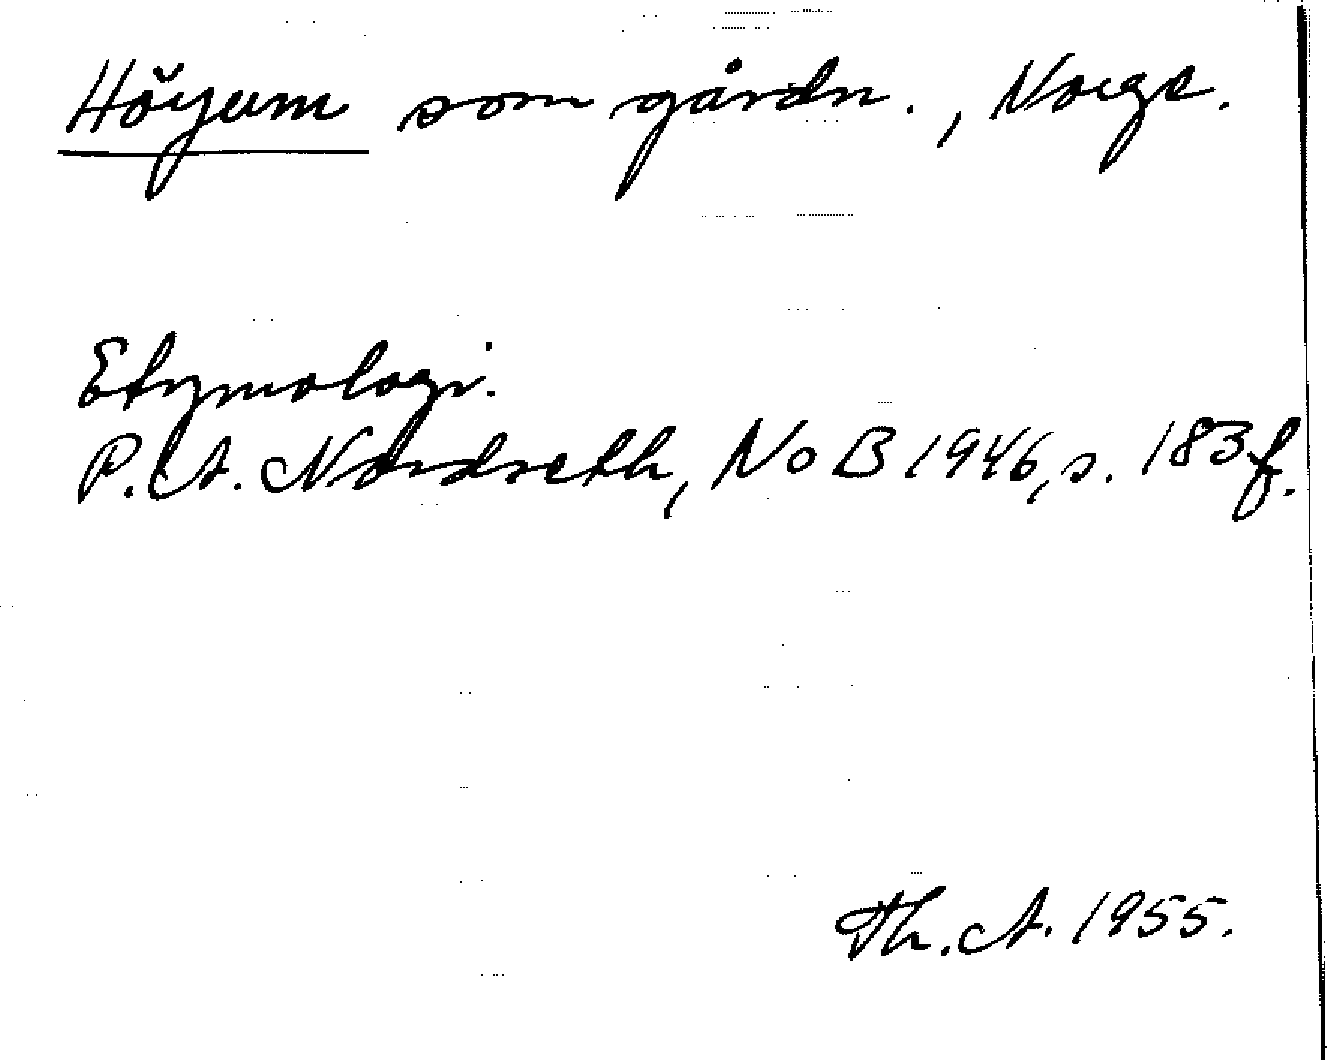 Höyum som gårdn., Norge.
Etymologi.
P. A. Nordseth, NoB 1946, s. 183 f.
Th. A. 1955.